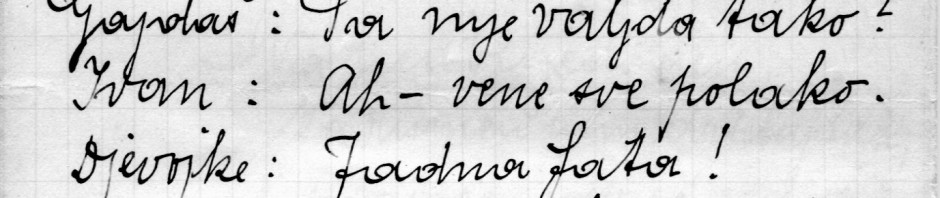 Gajdaš : Pa nije valjda tako ?
Ivan : Ah – vene sve polako .
Djevojke : Jadna Fata !